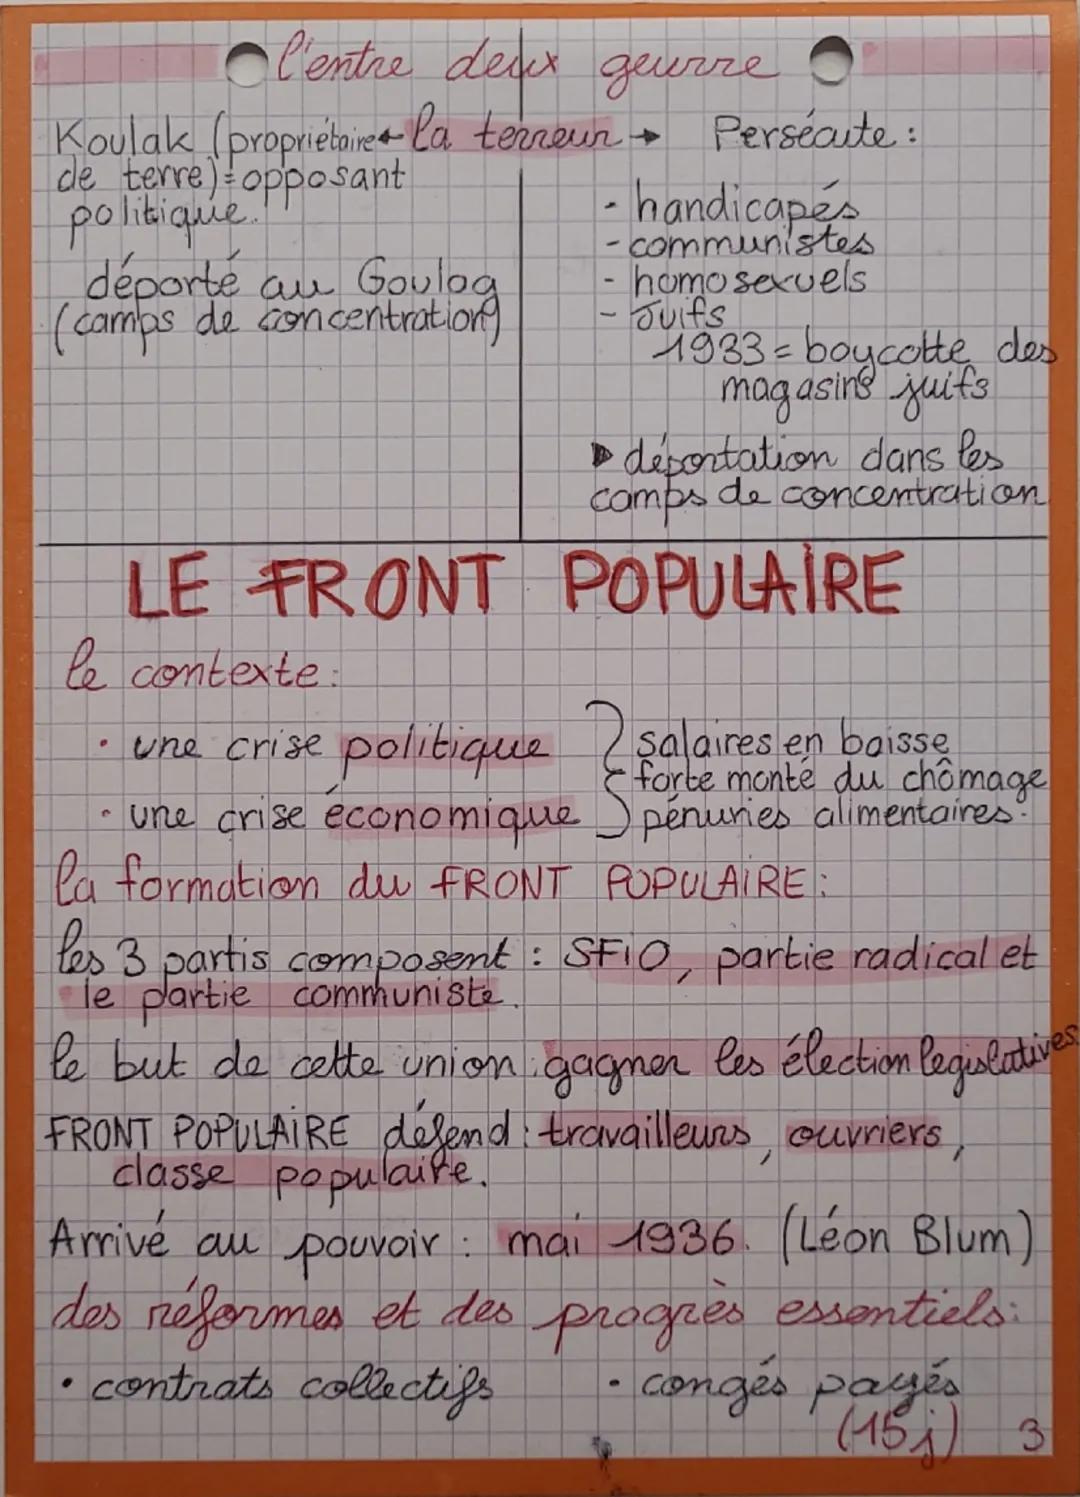 l'entre deux geurre
Koulak (propriétaire ← la terreur →
de terre) = opposant
politique.
déporté au Goulog
(camps de concentration)
Persécute :
- handicapés
- communistes
- homosexuels
- Juifs
1933 = boycotte des
magasins juifs
▶ déportation dans les
camps de concentration
LE FRONT POPULAIRE
le contexte :
• une crise politique
• une crise économique
salaires en baisse
forte monté du chômage
pénuries alimentaires.
la formation du FRONT POPULAIRE :
les 3 partis composent : SFiO, partie radical et
le partie communiste.
le but de cette union : gagner les élection legislatives.
FRONT POPULAIRE défend : travailleurs, ouvriers,
classe populaire.
Arrivé au pouvoir : mai 1936. (Léon Blum)
des réformes et des progrès essentiels :
• contrats collectifs
• congés payés
(15 j)
3